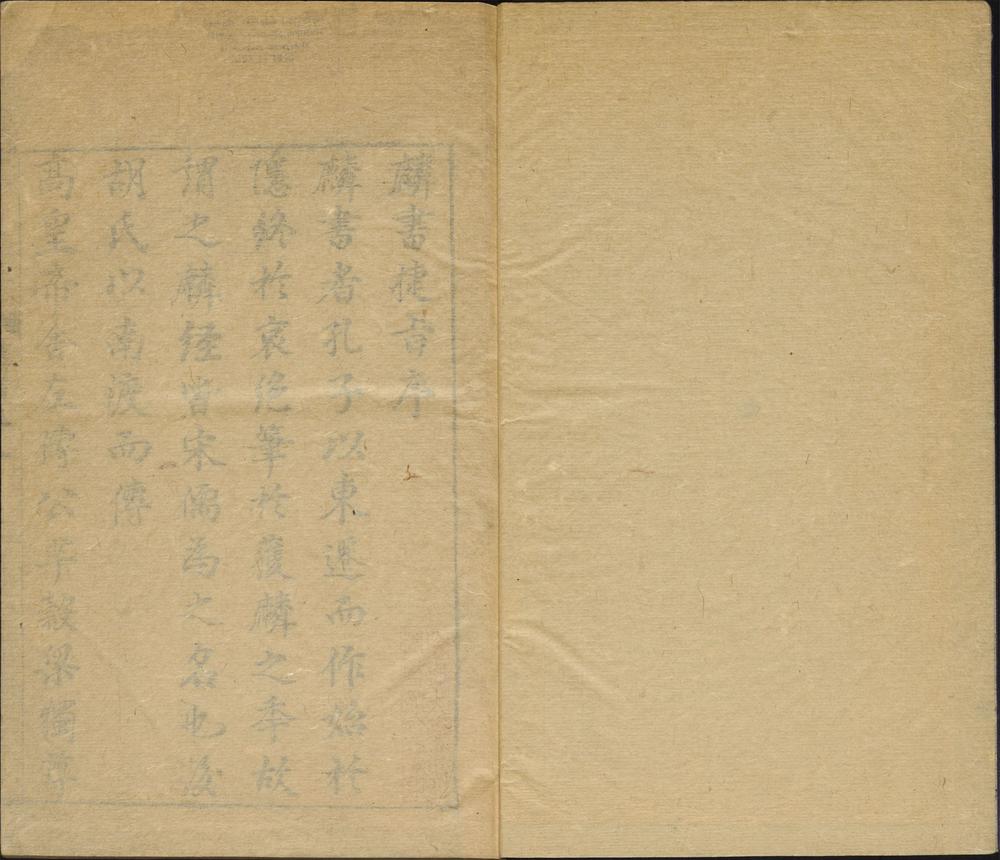 麟書捷旨序
麟書者孔子以東遷而作始於
隱終於哀絕筆於獲麟之年故
謂之麟經皆宋儒為之名也後
胡氏以南渡而傳
高皇帝舍左傳公羊穀梁獨尊